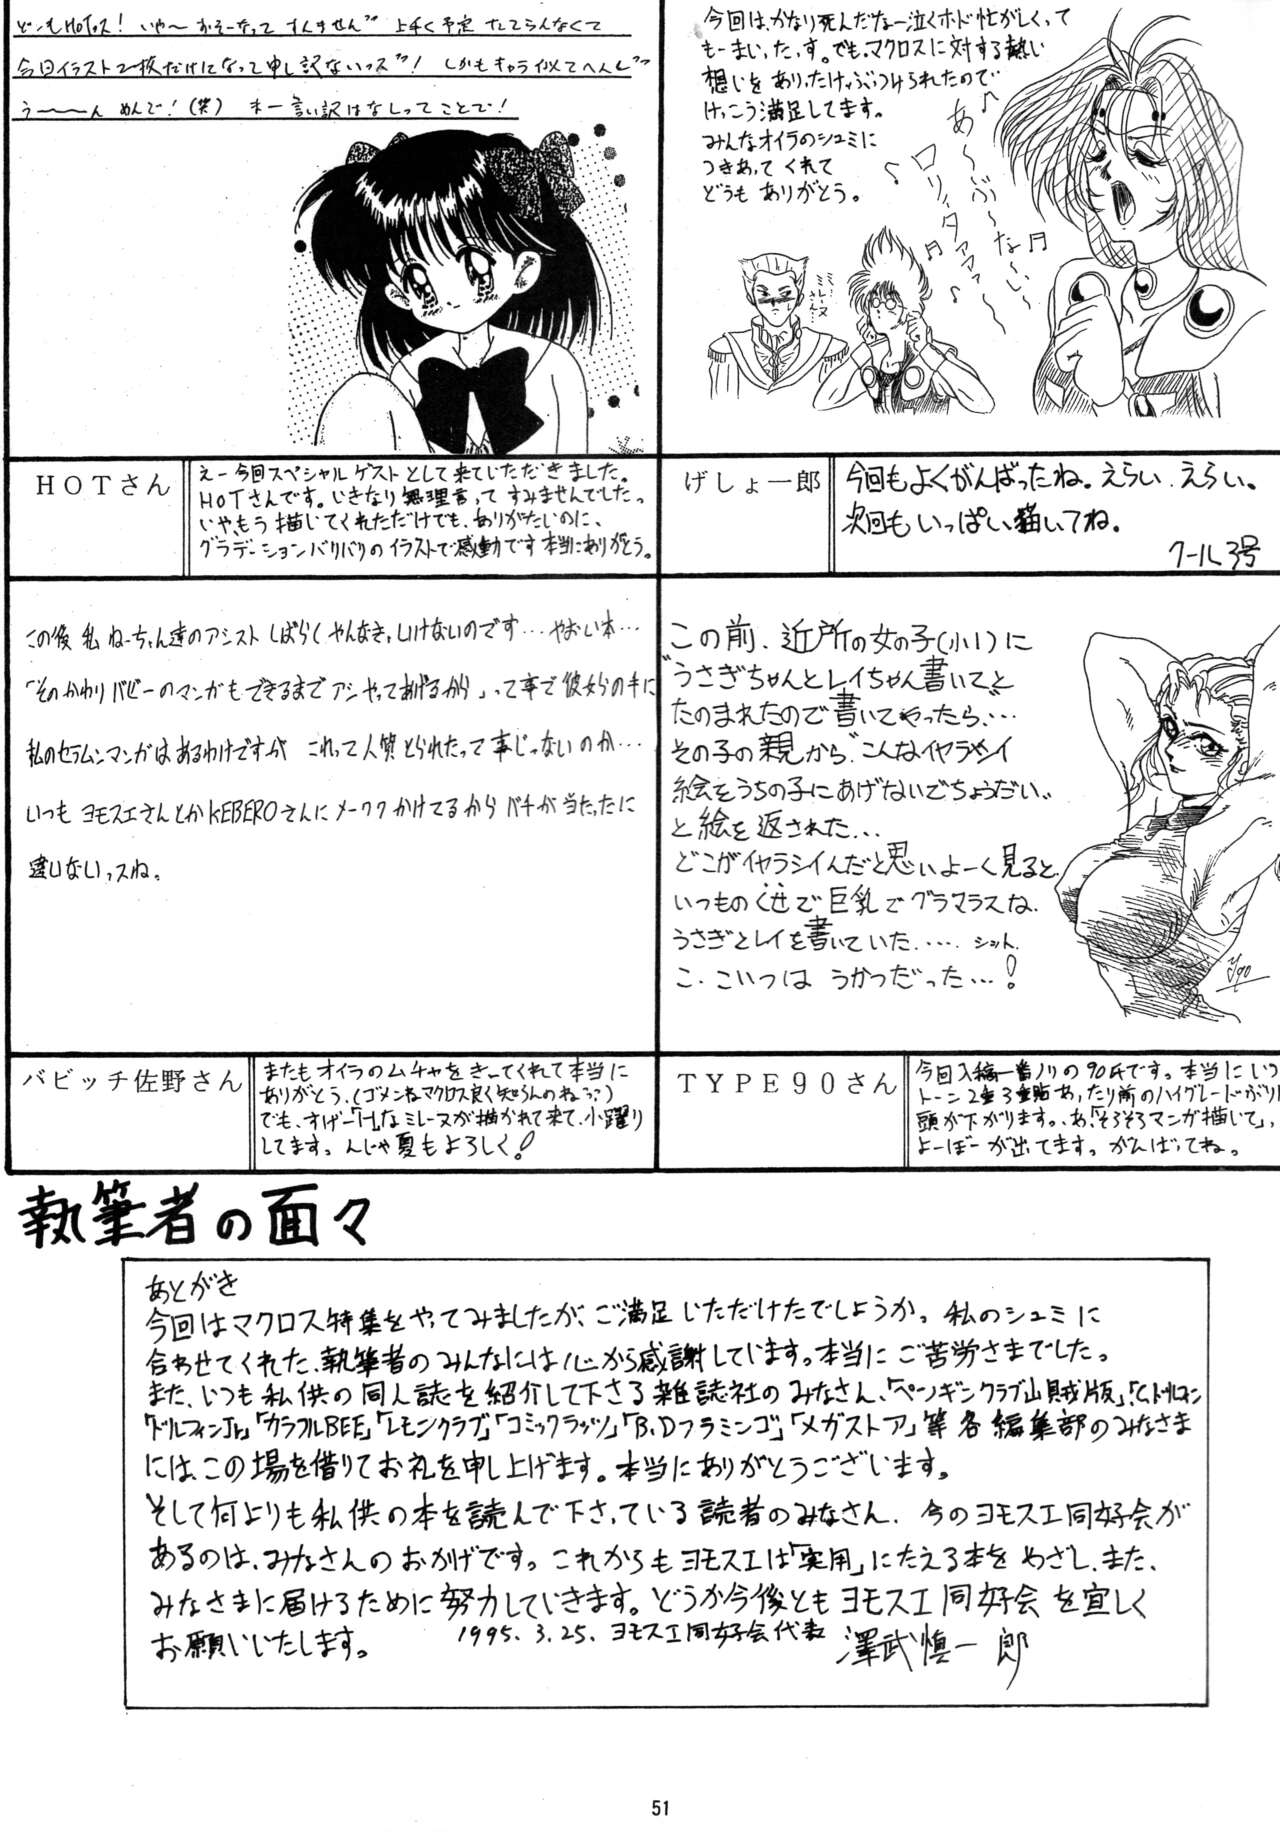 どーもHOTっス！いや〜おそーなってすんません 上手く予定たてらんなくて
今回イラスト2枚だけになって申し訳ないっス！しかもキャラ似てへんし
う〜〜〜ん めんで！(笑) ネー言い訳はなしってことで！
HOTさん
えー今回スペシャルゲストとして来ていただきました。
HOTさんです。いきなり無理言ってすみませんでしたっ
いや、もう描いてくれただけでも、ありがたいのに、
グラデーションバリバリのイラストで感動です本当にありがとう。
今回は、かなり死んだなー泣くホド忙がしくって
もーまいったっす。でも、マクロスに対する熱い
想いをありったけぶつけられたので
けっこう満足してます。
みんなオイラのシュミに
つきあってくれて
どうもありがとう。
あ〜ぶ〜な〜い〜
ロリィタァァァ〜
ミレーヌさん
げしょ一郎
今回もよくがんばったね。えらい、えらい。
次回もいっぱい描いてね。
クール3号
この後 私 ねーちゃん達のアシストしばらくやんなきゃいけないのです…やおい本…
「そのかわりバビーのマンガもできるまでアシやってあげるから」って事で彼女らの手に
私のセラムンマンガはあるわけですが これって人質とられたって事じゃないのか…
いつもヨモスエさんとかKEBEROさんにメーワクかけてるからバチが当たったに
違いないっスね。
バビッチ佐野さん
またもオイラのムチャをきーてくれて本当に
ありがとう、(ゴメンねマクロス良く知らんのねっ?)
でも、すげー「H」なミレーヌが描かれて来て、小躍り
してます。んじゃ夏もよろしく！
この前、近所の女の子(小1)に
"うさぎちゃんとレイちゃん書いて"と
たのまれたので書いてやったら、…
その子の親から"こんなイヤラシイ
絵をうちの子にあげないでちょうだい"
と絵を返された…
どこがイヤラシイんだと思いよーく見ると、
いつものくせで巨乳でグラマラスな、
うさぎとレイを書いていた…… ショット、
こ、こいつは うかつだった…！
TYPE90さん
今回入稿一番ノリの90氏です。本当にいつ
トーン2重3重貼あったり前のハイグレードがり
頭が下がります。あ、「そろそろマンガ描いて」っ
よーぼーが出てます。がんばってね。
執筆者の面々
あとがき
今回はマクロス特集をやってみましたが、ご満足いただけたでしょうか。私のシュミに
合わせてくれた、執筆者のみんなには心から感謝しています。本当にご苦労さまでした。
また、いつも私供の同人誌を紹介して下さる雑誌社のみなさん、「ペンギンクラブ山賊版」、「C.ドルフィン
「ドルフィンJr」「カラフルBEE」「レモンクラブ」「コミックラッツ」「B.Dフラミンゴ」「メガストア」等各編集部のみなさま
には、この場を借りてお礼を申し上げます。本当にありがとうございます。
そして何よりも私供の本を読んで下さっている読者のみなさん、今のヨモスエ同好会が
あるのは、みなさんのおかげです。これからもヨモスエは「実用」にたえる本をめざし、また、
みなさまに届けるために努力していきます。どうか今後ともヨモスエ同好会を宜しく
お願いいたします。 1995.3.25. ヨモスエ同好会代表 澤武慎一郎
51